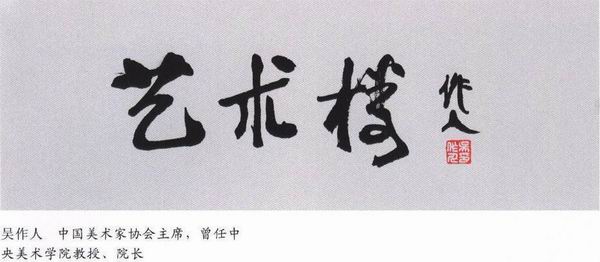 艺术楼
作人
吴作人 中国美术家协会主席，曾任中
央美术学院教授、院长